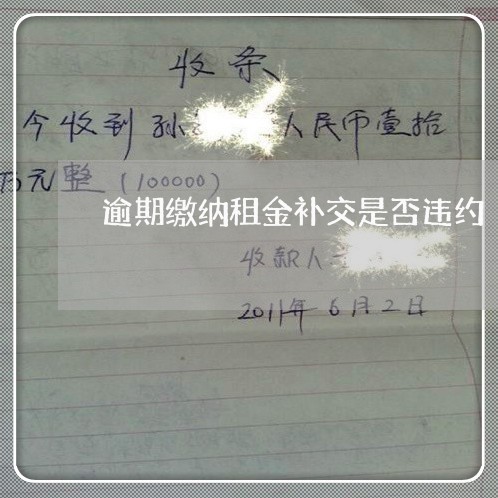 收条
今收到孙 人民币壹拾
万元整（100000）
逾期缴纳租金补交是否违约
收款人
2011年6月2日